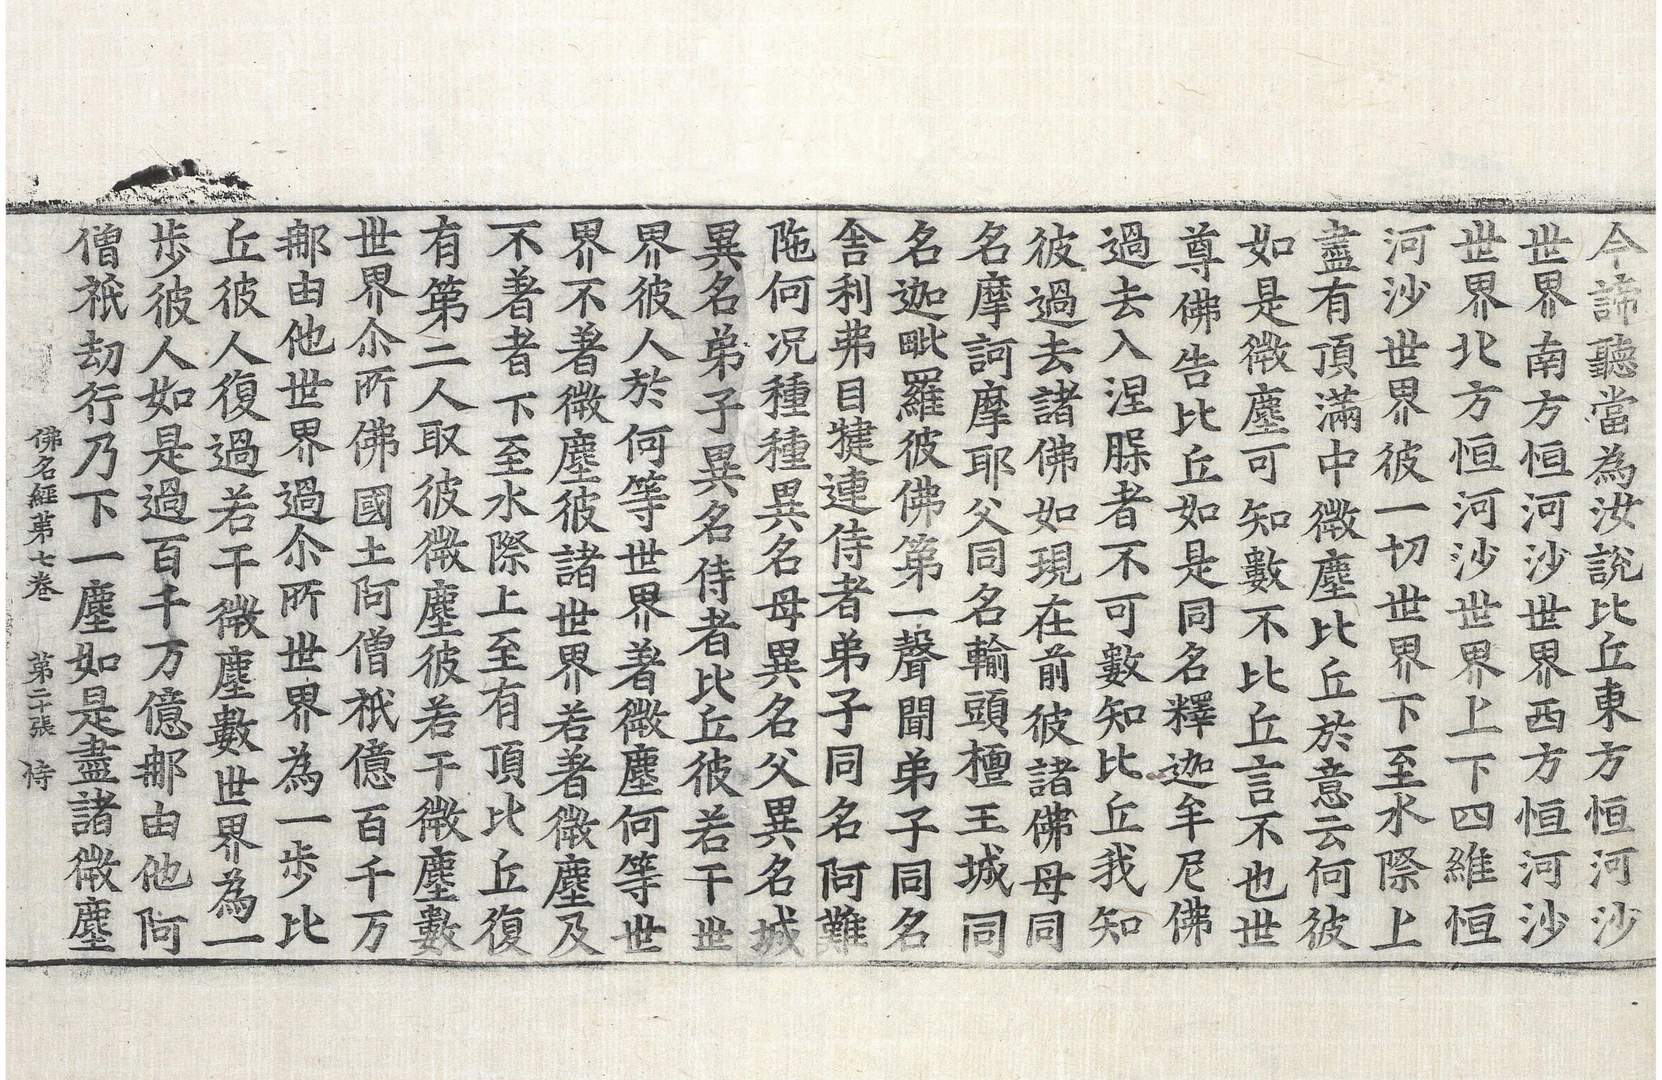 今諦聽當為汝說比丘東方恒河沙
世界南方恒河沙世界西方恒河沙
世界北方恒河沙世界上下四維恒
河沙世界彼一切世界下至水際上
盡有頂滿中微塵比丘於意云何彼
如是微塵可知數不比丘言不也世
尊佛告比丘如是同名釋迦牟尼佛
過去入涅脲者不可數知比丘我知
彼過去諸佛如現在前彼諸佛母同
名摩訶摩耶父同名輸頭檀王城同
名迦毗羅彼佛第一聲聞弟子同名
舎利弗目揵連侍者弟子同名阿難
陁何况種種異名母異名父異名城
異名弟子異名侍者比丘彼若干世
界彼人於何等世界著微塵何等世
界不著微塵彼諸世界若著微塵及
不著者下至水際上至有頂比丘復
有第二人取彼微塵彼若干微塵數
世界尒所佛國土阿僧祇億百千万
那由他世界過尒所世界為一步比
丘彼人復過若干微塵數世界為一
步彼人如是過百千万億那由他阿
僧祇劫行乃下一塵如是盡諸微塵
佛名經第七卷　第二十張　侍